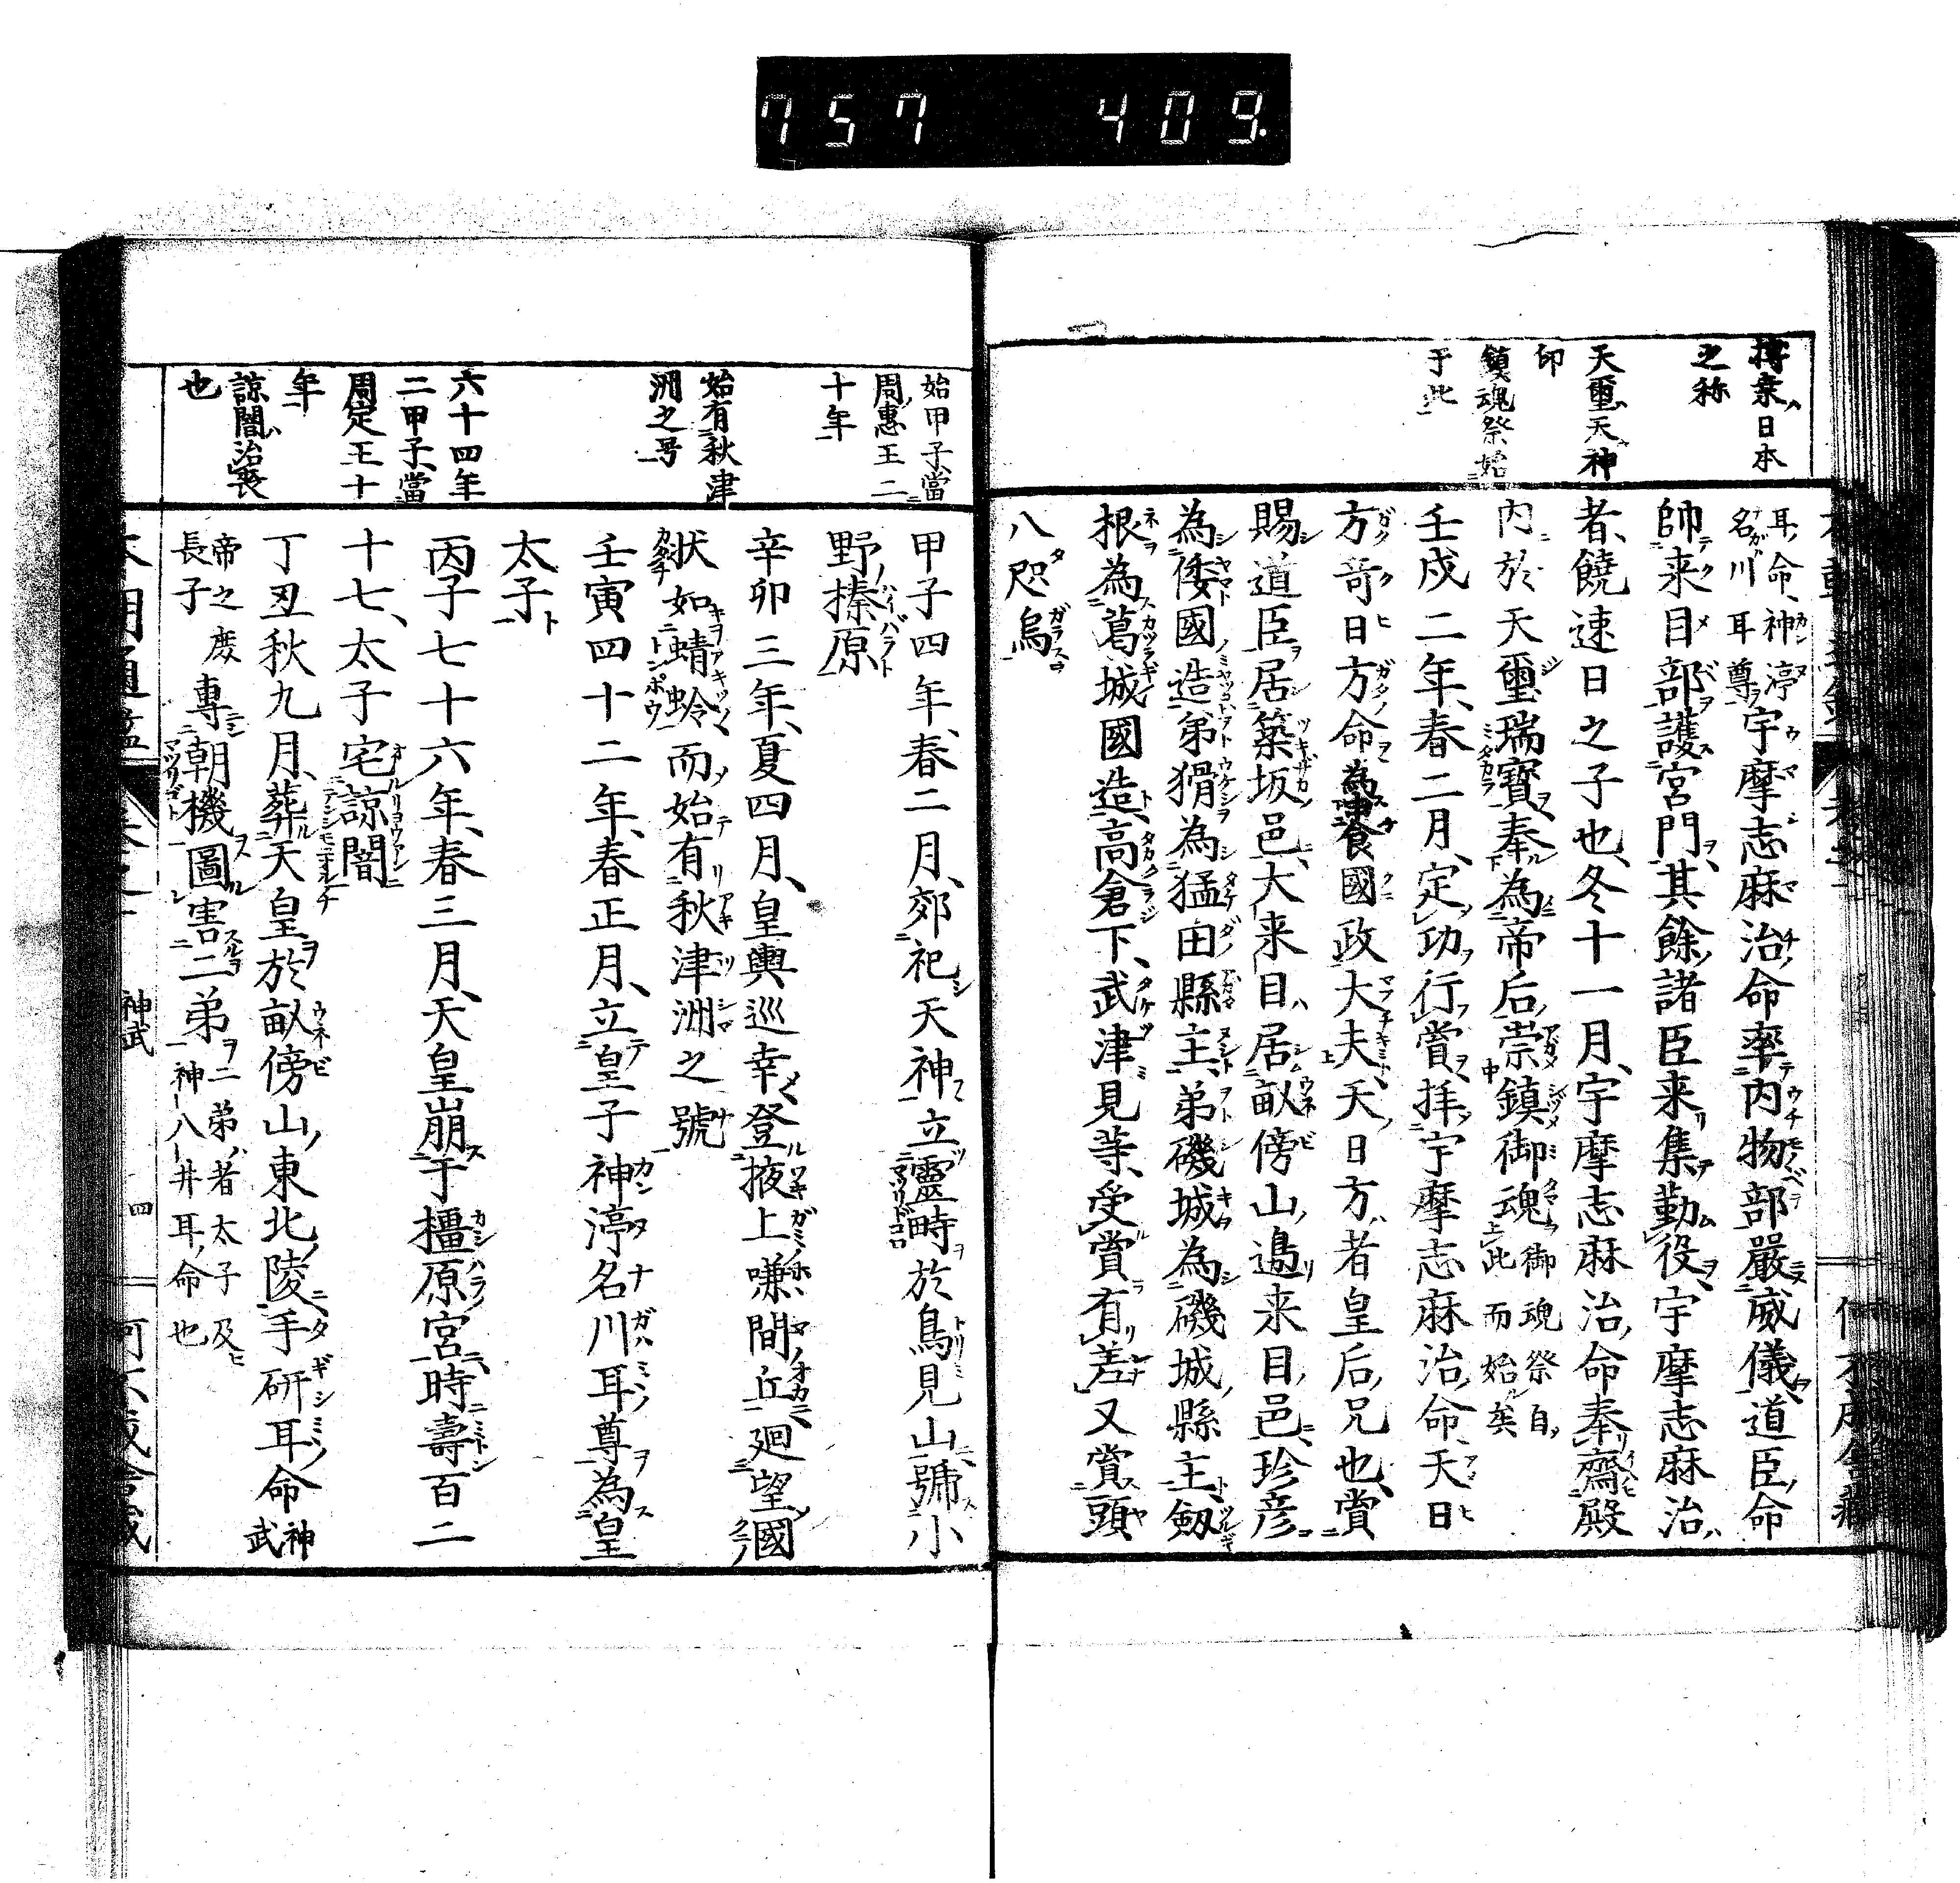 757 409.
搏桒日本
之称
天璽天神
印
鎮魂祭始
于此
耳命神渟
名川耳尊宇摩志麻治命率内物部嚴威儀道臣命
帥来目部護宮門其餘諸臣来集勤役宇摩志麻治
者饒速日之子也冬十一月宇摩志麻治命奉齋殿
内於天璽瑞寶奉為帝后崇鎮御魂御魂祭自
此而始矣
壬戌二年春二月定功行賞拝宇摩志麻治命天日
方竒日方命為食國政大夫天日方者皇后兄也賞
賜道臣居築坂邑大来目居畝傍山邉来目邑珍彦
為倭國造弟猾為猛田縣主弟磯城為磯城縣主劔
根為葛城國造高倉下武津見等受賞有差又賞頭
八咫烏
始甲子當
周惠王二
十年
始有秋津
洲之号
六十四年
二甲子當
周定王十
年
諒闇治喪
也
甲子四年春二月郊祀天神立靈畤於鳥見山號小
野榛原
辛卯三年夏四月皇輿巡幸登掖上嗛間丘廻望國
状如蜻蛉而始有秋津洲之號
壬寅四十二年春正月立皇子神渟名川耳尊為皇
太子
丙子七十六年春三月天皇崩于橿原宮時壽百二
十七太子宅諒闇
丁丑秋九月葬天皇於畝傍山東北陵手研耳命神
武
帝之庶
長子專朝機圖害二弟二弟者太子及
神八井耳命也
神武
四